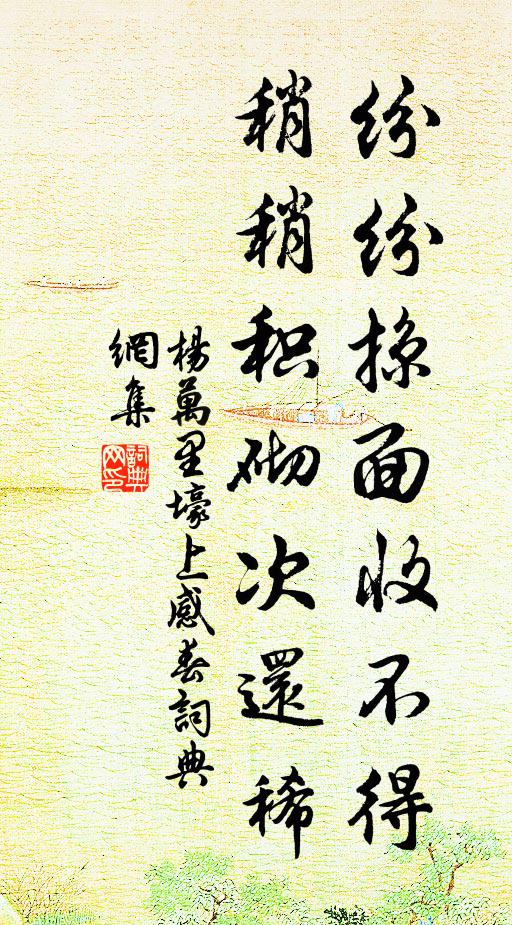 紛紛掠面收不得
稍稍积砌次還稀
楊萬里壕上感春詞典
網集
詞典
网印